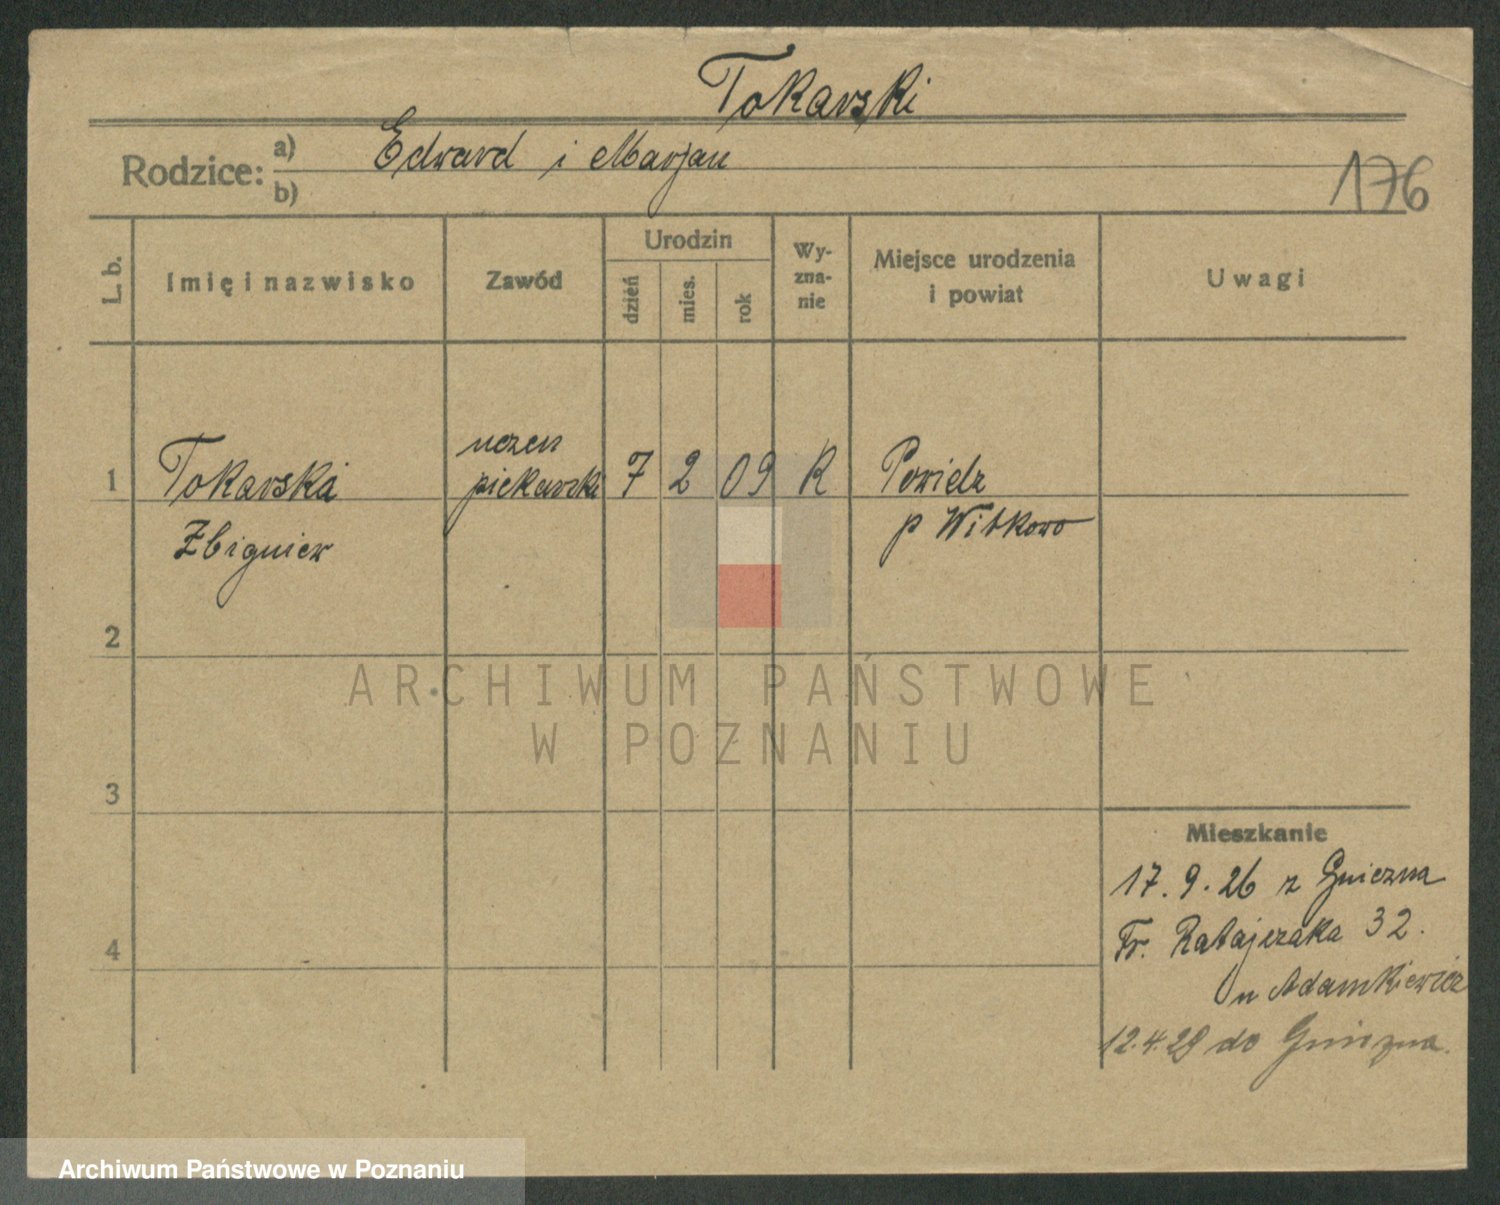 Tokarski
Rodzice: a) Edward i Marjan
b)
176
L. b.
Imię i nazwisko
Zawód
Urodzin
dzień
mies.
rok
Wy-
zna-
nie
Miejsce urodzenia
i powiat
Uwagi
1
Tokarski
Zbigniew
uczen
piekarski
7
2
09
R
Powidz
p Witkowo
2
3
4
Mieszkanie
17.9.26 z Gniezna
Fr. Ratajczaka 32.
u Adamkiewicz
12.4.28 do Gniezna.
ARCHIWUM PAŃSTWOWE
W POZNANIU
Archiwum Państwowe w Poznaniu